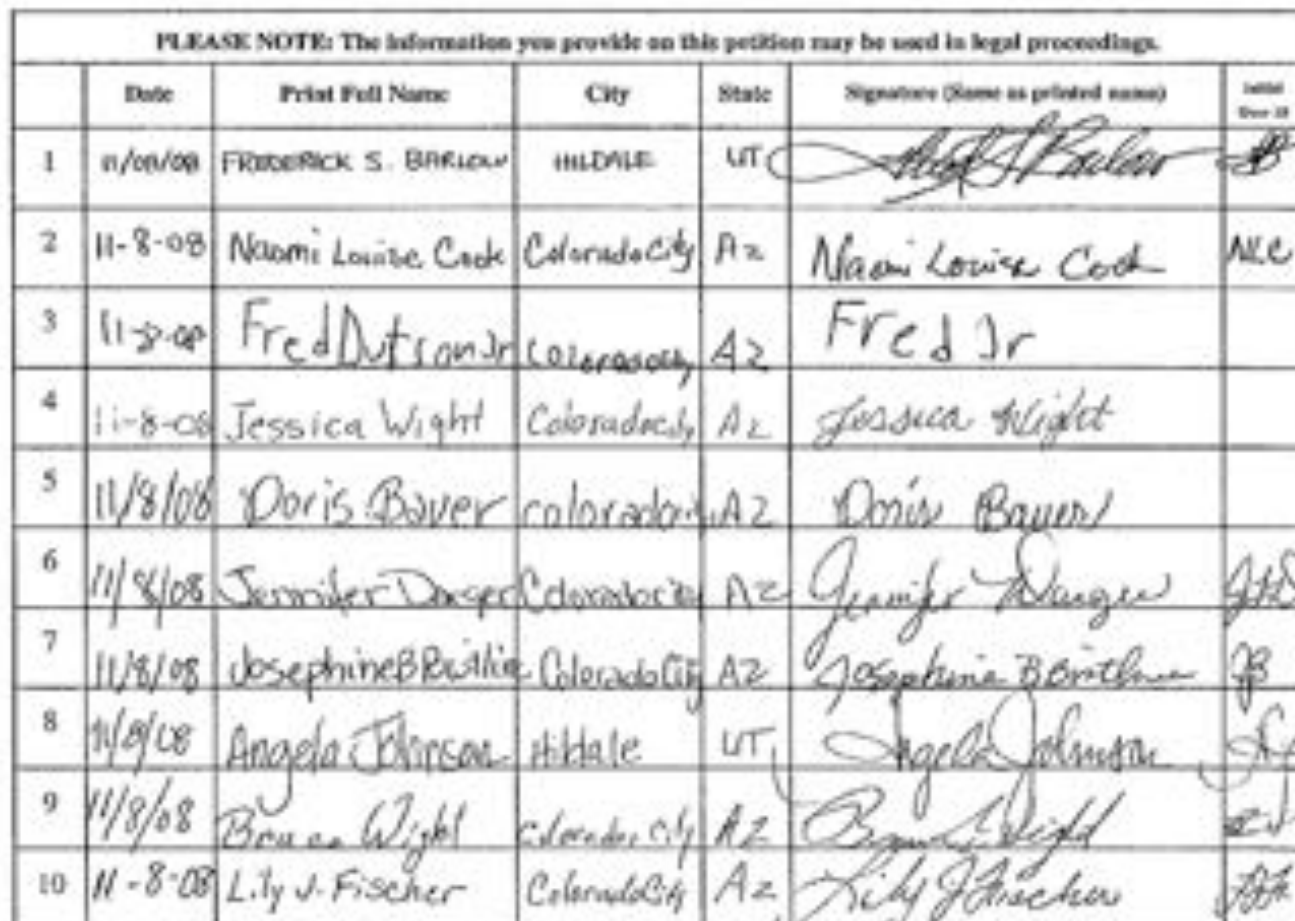 PLEASE NOTE: The information you provide on this petition may be used in legal proceedings.
Date Print Full Name City State Signature (Same as printed name) Initial Over 18
1 11/08/08 FREDERICK S. BARLOW HILDALE UT Barlow
2 11-8-08 Naomi Louise Cook Colorado City Az Naomi Louise Cook NLC
3 11-8-08 Fred Dutson Jr Colorado city Az Fred Jr
4 11-8-08 Jessica Wight Colorado city Az Jessica Wight
5 11/8/08 Doris Bauer colorado AZ Doris Bauer
6 11/8/08 Jennifer Darger Colorado city AZ Jennifer Darger
7 11/8/08 Josephine B Colorado City AZ Josephine B JB
8 11/8/08 Angela Johnson Hildale UT Angela Johnson
9 11/8/08 Bruce Wight Colorado city AZ Wight
10 11-8-08 Lily J. Fischer Colorado City Az Lily J Fischer